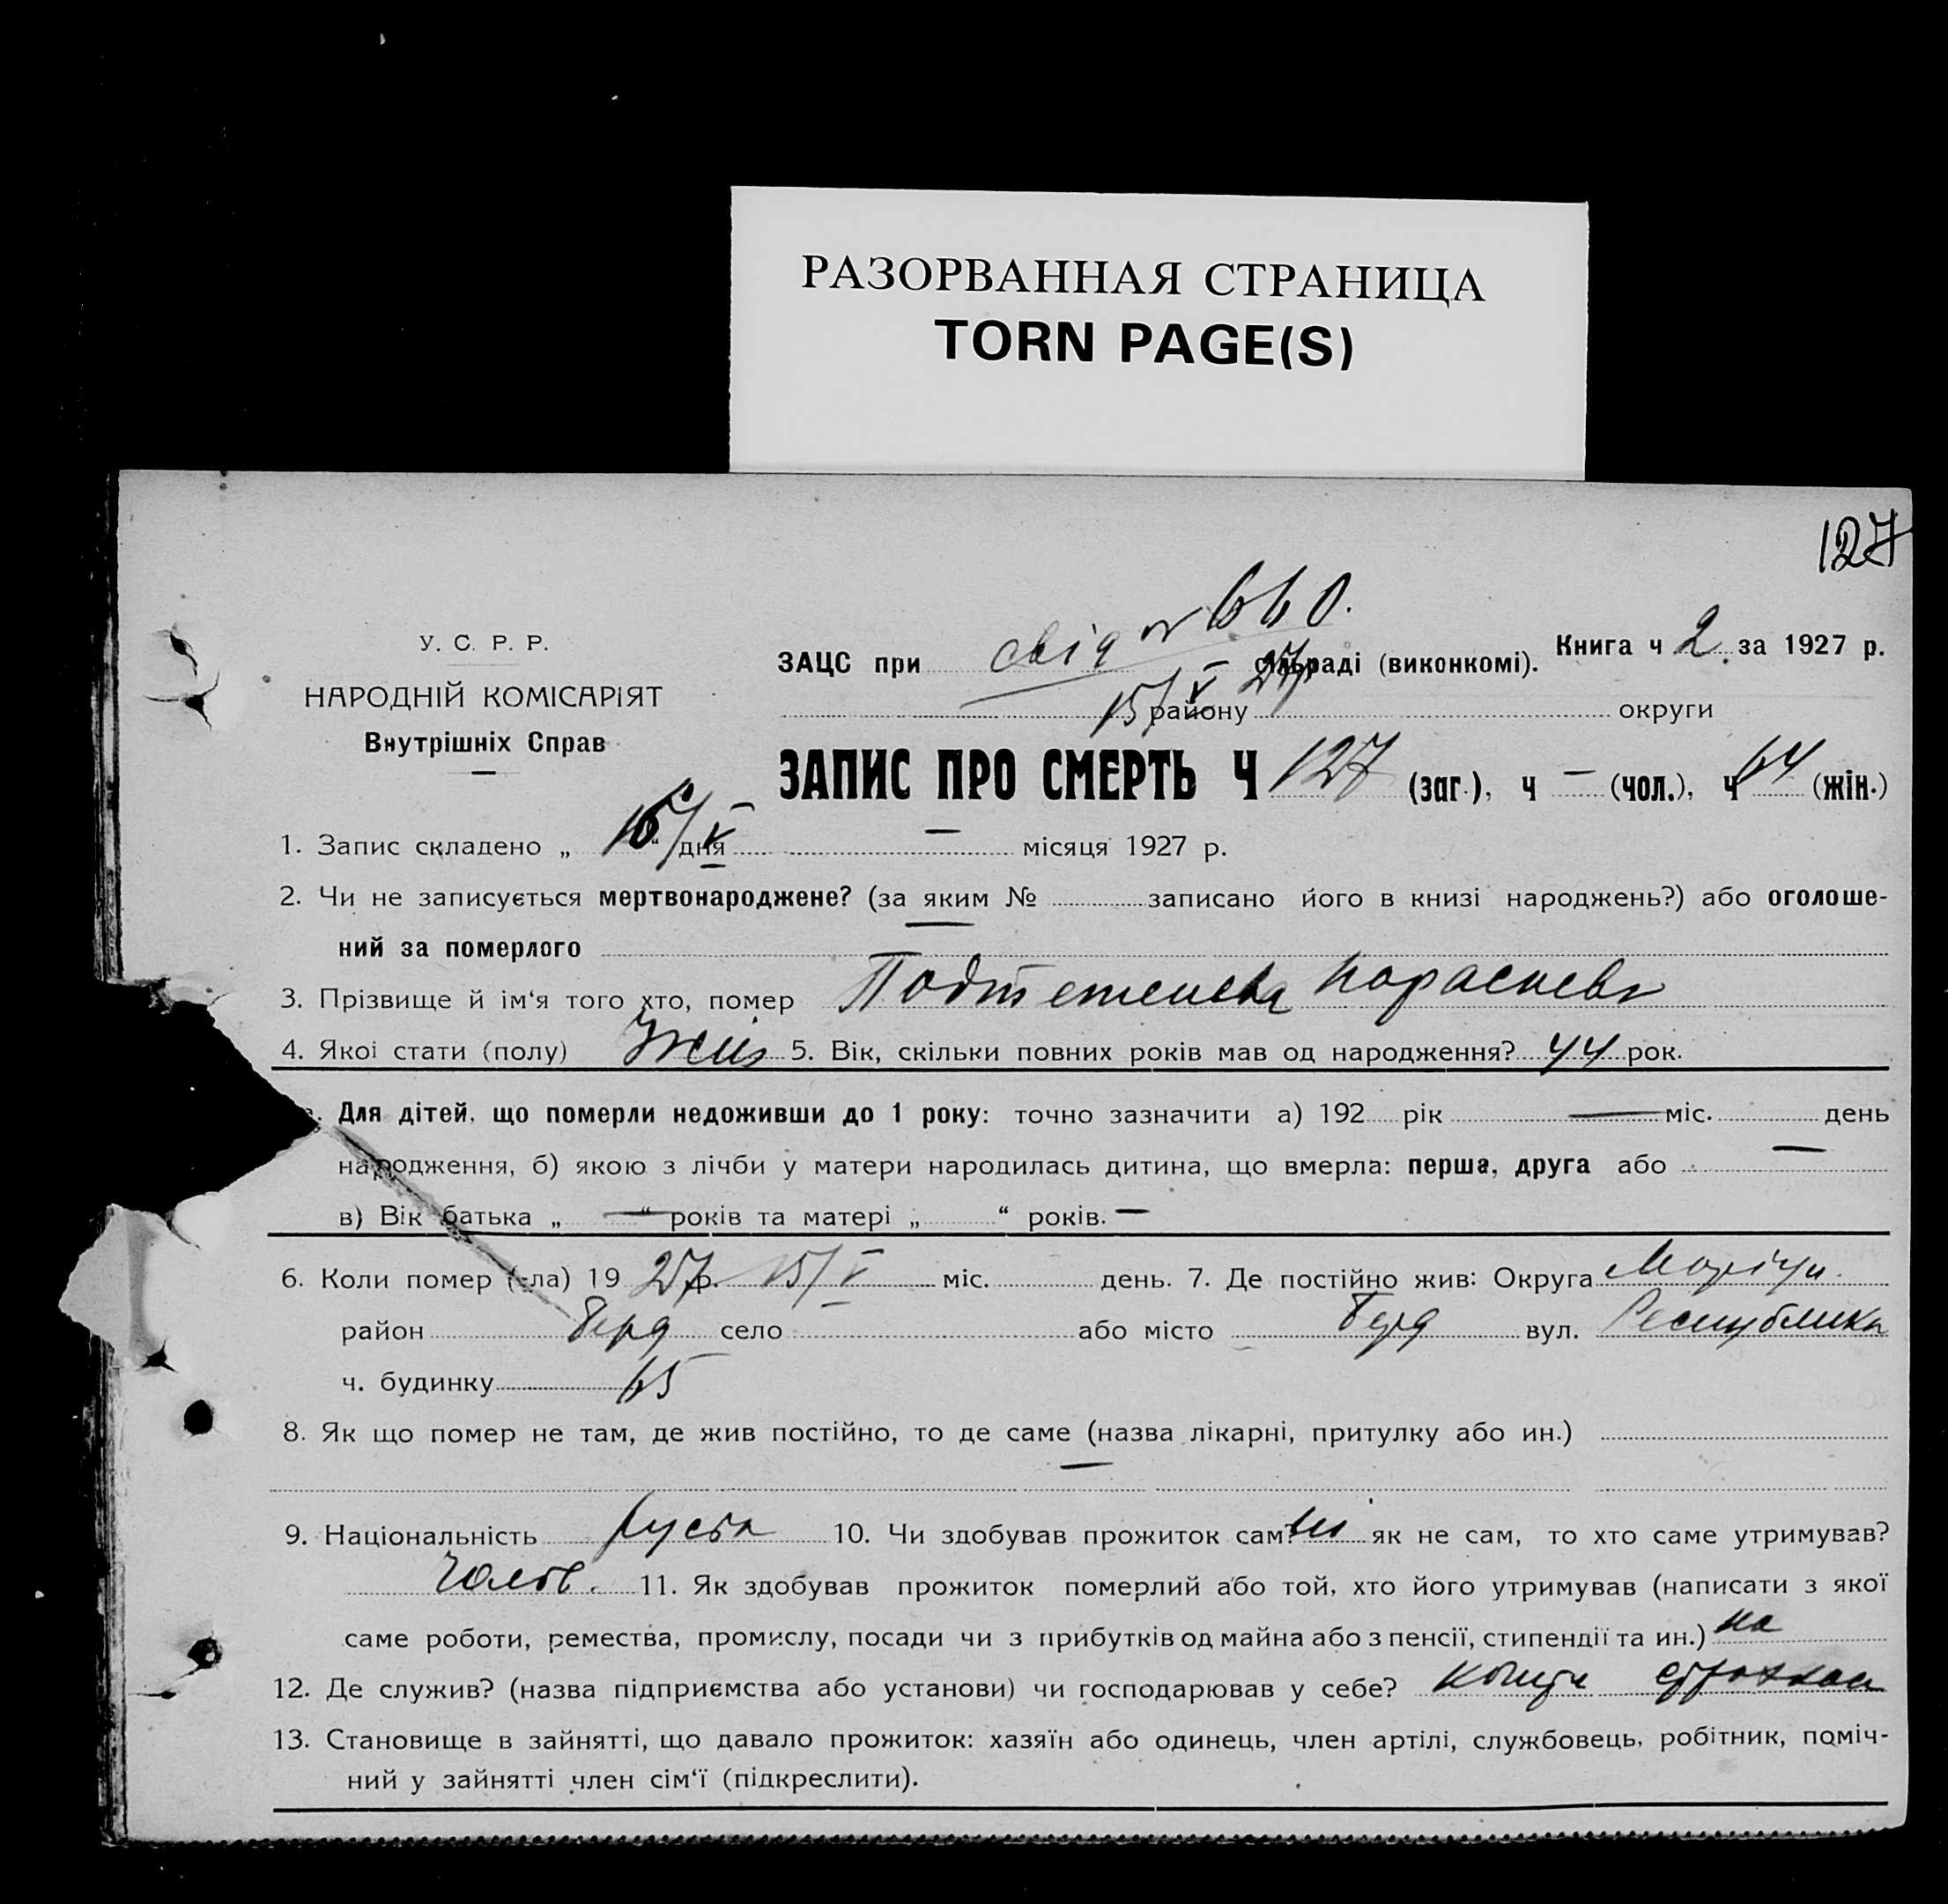 РАЗОРВАННАЯ СТРАНИЦА
TORN PAGE(S)
127
У. С. Р. Р.
НАРОДНІЙ КОМІСАРІЯТ
Внутрішніх Справ
свід № 660.
ЗАЦС при сільраді (виконкомі). Книга ч 2 за 1927 р.
15/V 27 району округи
ЗАПИС ПРО СМЕРТЬ Ч 127 (заг.), ч — (чол.), ч 64 (жін.)
1. Запис складено „ 15/V “ дня — місяця 1927 р.
2. Чи не записується мертвонароджене? (за яким № записано його в книзі народжень?) або оголоше-
ний за померлого —
3. Прізвище й ім‘я того хто, помер
4. Якої стати (полу) 5. Вік, скільки повних років мав од народження? 44 рок.
Для дітей, що померли недоживши до 1 року: точно зазначити а) 192 рік — міс. день
народження, б) якою з лічби у матери народилась дитина, що вмерла: перша, друга або —
в) Вік батька „ — “ років та матері „ “ років. —
6. Коли помер (-ла) 19 27 р. 15/V міс. день. 7. Де постійно жив: Округа Маріуп.
район Берд село або місто Берд вул. Республики
ч. будинку 65
8. Як що помер не там, де жив постійно, то де саме (назва лікарні, притулку або ин.)
—
9. Національність руська 10. Чи здобував прожиток сам? ні як не сам, то хто саме утримував?
чолов. 11. Як здобував прожиток померлий або той, хто його утримував (написати з якої
саме роботи, ремества, промислу, посади чи з прибутків од майна або з пенсії, стипендії та ин.) на
12. Де служив? (назва підприємства або установи) чи господарював у себе? кошти
13. Становище в зайнятті, що давало прожиток: хазяїн або одинець, член артілі, службовець, робітник, поміч-
ний у зайнятті член сім‘ї (підкреслити).